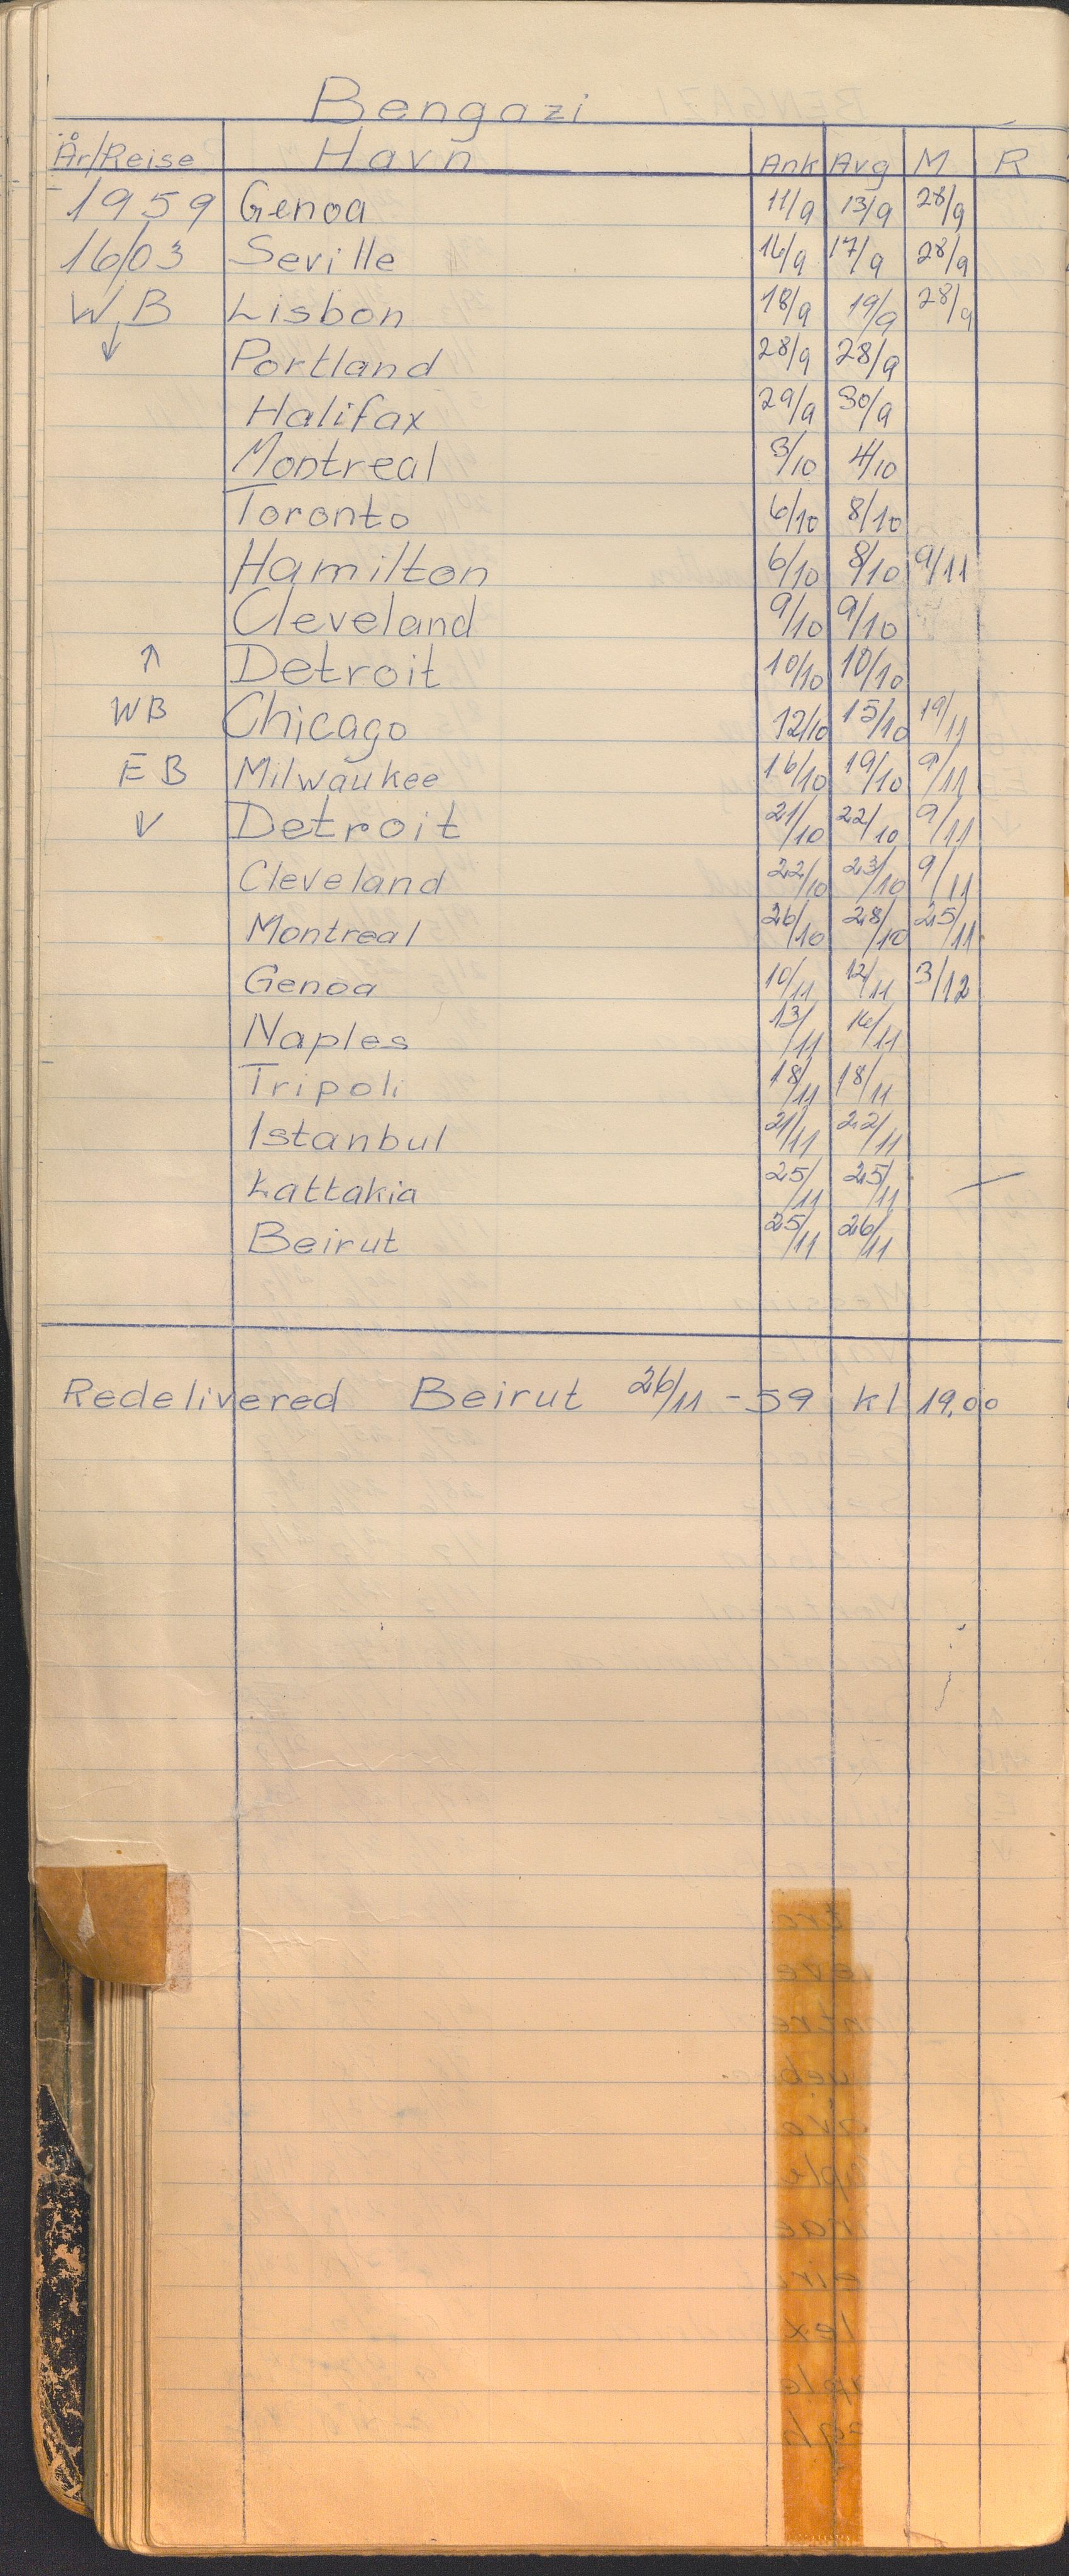 Bengazi
År/Reise Havn Ank Avg M R
1959 Genoa 11/9 13/9 28/9
16/03 Seville 16/9 17/9 28/9
WB Lisbon 18/9 19/9 28/9
↓ Portland 28/9 28/9
Halifax 29/9 30/9
Montreal 3/10 4/10
Toronto 6/10 8/10
Hamilton 6/10 8/10 9/11
Cleveland 9/10 9/10
↑ Detroit 10/10 10/10
WB Chicago 12/10 15/10 19/11
EB Milwaukee 16/10 19/10 9/11
↓ Detroit 21/10 22/10 9/11
Cleveland 22/10 23/10 9/11
Montreal 26/10 28/10 25/11
Genoa 10/11 12/11 3/12
Naples 13/11 16/11
Tripoli 18/11 18/11
Istanbul 21/11 22/11
Lattakia 25/11 25/11
Beirut 25/11 26/11
Redelivered Beirut 26/11 - 59 kl 19.00